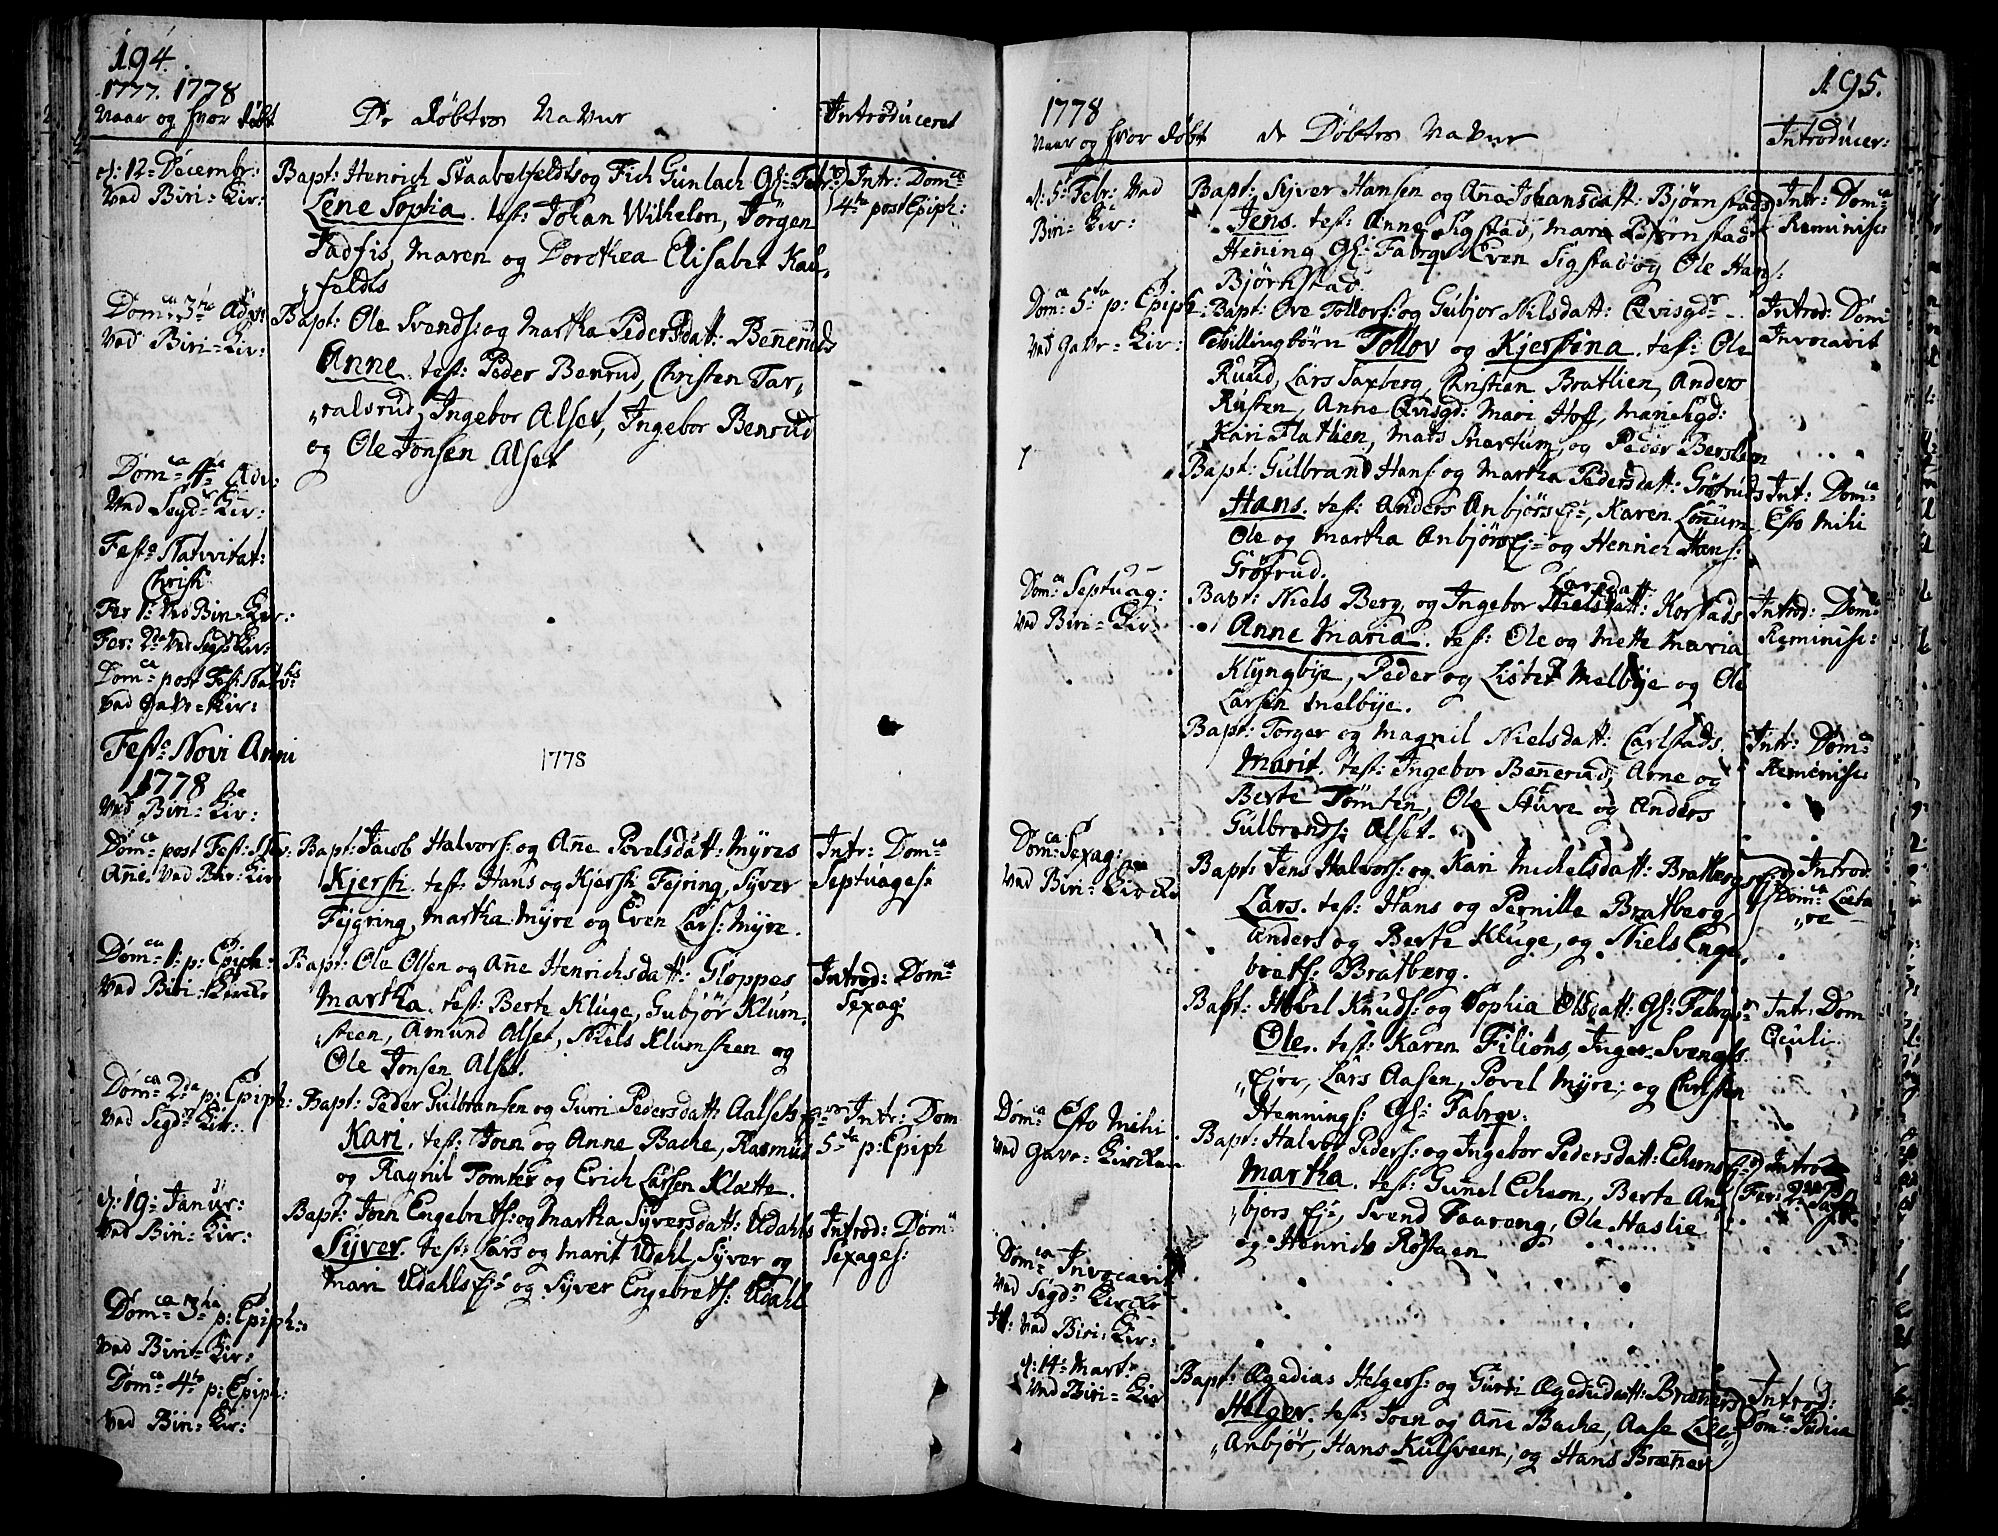 194.
1777. 1778
Naar og hvor døbt
De døbtes Navne
Introduceret
d: 12 Decembr:
Ved Biri-Kir:
Bapt: Henrich Staabelfeldts og Fich Gunlach Gl: Fabr:
Lene Sophia. tes: Johan Wilhelm, Jørgen
Maren og Dorothea Elisabet Kau-
feldts
Intr: Domca
4ta post Epiph:
Domca 3tia Adv:
Ved Biri-Kir:
Bapt: Ole Svends: og Martha Pedersdatt: Benneruds
Anne. tes: Peder Benrud, Christen Tar-
ralsrud, Ingebor Alset, Ingebor Benrud
og Ole Jonsen Alset
Domca 4ta Adv:
Ved Segdr Kir:
Festo Nativitat:
Christi
Fer 1: Ved Biri-Kir:
Fer: 2da Ved Segdr Kir:
Domca post Fest: Nativ:
Ved Gavr-Kir:
Festo Novi Anni
1778
Ved Biri-Kir:
1778
Domca post Fest: Nov:
Anni Ved Biri-Kir:
Bapt: Jacob Halvors: og Anne Povelsdatt: Myres
Kjersti. tes: Hans og Kjersti Fejring, Syver
Fejgring, Martha Myre og Even Lars: Myre.
Intr: Domca
Septuages:
Domca 1: p: Epiph:
Ved Biri-Kircke
Bapt: Ole Olsen og Anne Henrichsdatt: Gloppes
Martha. tes: Berte Kluge, Gubjør Klum-
steen, Amund Alset, Niels Klumsteen og
Ole Jonsen Alset.
Introd: Domca
Sexag:
Domca 2da p: Epiph:
Ved Segdr Kir:
Bapt: Peder Gulbransen og Gurri Pedersdatt: Aalsets Ejer
Kari. tes: Joen og Anne Bache, Rasmus
og Ragnil Tomter og Erich Larsen Klætte.
Intr: Dom
5ta p: Epiph
d: 19: Januar:
Ved Biri-Kir:
Bapt: Joen Engebrets: og Martha Syversdatt: Udahls
Syver. tes: Lars og Marit Udahl, Syver og
Mari Udahls Ej: og Syver Engebrets: Udahl
Introd: Domca
Sexages:
Domca 3tia p: Epiph:
Ved Biri-Kir:
Domca 4ta p: Epiph:
Ved Biri-Kir:
195.
1778
Naar og hvor døbt
de Døbtes Navne
Introducer:
d: 5: Febr: Ved
Biri-Kir:
Bapt: Syver Hansen og Anne Johansdatt: Bjørnstads
Jens. tes: Anne Sigstad, Mari Bjørnstad
Hening Gl: Fabrqv Even Sigstad og Ole Hans:
Bjørkstad.
Intr: Domca
Reminisc:
Domca 5ta p: Epiph
Ved Gavr-Kir:
Bapt: Ove Tollovs: og Gubjor Nilsdatt: Qvisgdr
Tvillingbörn Tollov og Kjerstina. tes: Ole
Ruud, Lars Saxberg, Christen Bratlien, Anders
Rusten, Anne Qvisgd: Mari Hoff, Mari
Kari Flatlien, Mats Snartum, og Peder Berslien
Introd: Dom
Invocavit
Bapt: Gulbrand Hans: og Martha Pedersdatt: Gröfruds
Hans. tes: Anders Anbjørs Ej:, Karen Lønnum
Ole og Martha Anbjørs Ej: og Henrich Hans:
Gröfrud.
Int: Domca
Esto Mihi
Domca Septuag:
Ved Biri-Kir:
Larsdatt:
Bapt: Niels Berg, og Ingebor Nielsdatt: Korstads
Anne Maria. tes: Ole og Mette Maria
Klyngbye, Peder og Lisbet Melbye og Ole
Larsen Melbye.
Introd: Domca
Reminisc:
Bapt: Torger og Magnil Nielsdatt: Carlstads
Marit. tes: Ingebor Bennerud, Arne og
Berte Tømten, Ole Stuve og Anders
Gulbrands: Alset.
Intr: Domca
Reminisc:
Domca Sexag:
Ved Biri-Kircke
Bapt: Jens Halvors: og Kari Michelsdatt: Bratbergs Ej:
Lars. tes: Hans og Pernille Bratberg,
Anders og Berte Kluge, og Niels Enge-
brets: Bratberg.
Introd.
Domca Læta-
re
Bapt: Hovel Knuds: og Sophia Olsdatt: Gl: Fabrqv
Ole. tes: Karen Filions, Inger Svengls
Ejer, Lars Aasen, Povel Myre, og Christen
Hennings: Gl: Fabrqv.
Intr: Dom
Oculi.
Domca Esto Mihi
Ved Gavr-Kircken
Bapt: Halvor Peders: og Ingebor Pedersdatt: Echerns Ej:
Martha. tes: Gunnel Echern, Berte An-
bjørs Ej:, Svend Faareng, Ole Haslie
og Henrich Røstøen
Introd:
Fer: 2da Pasch
Domca Invocavit
Ved Segdr Kircke
It: Ved Biri-Kir:
d: 14: Mart:
Ved Biri-Kir
Bapt: Ægedias Helgers: og Gurri Ægedudatt: Bræners
Helger. tes: Joen og Anne Bache, Aase Lille
Anbjør, Hans Kulsveen, og Hans Bræner
Introd:
Domca Judica